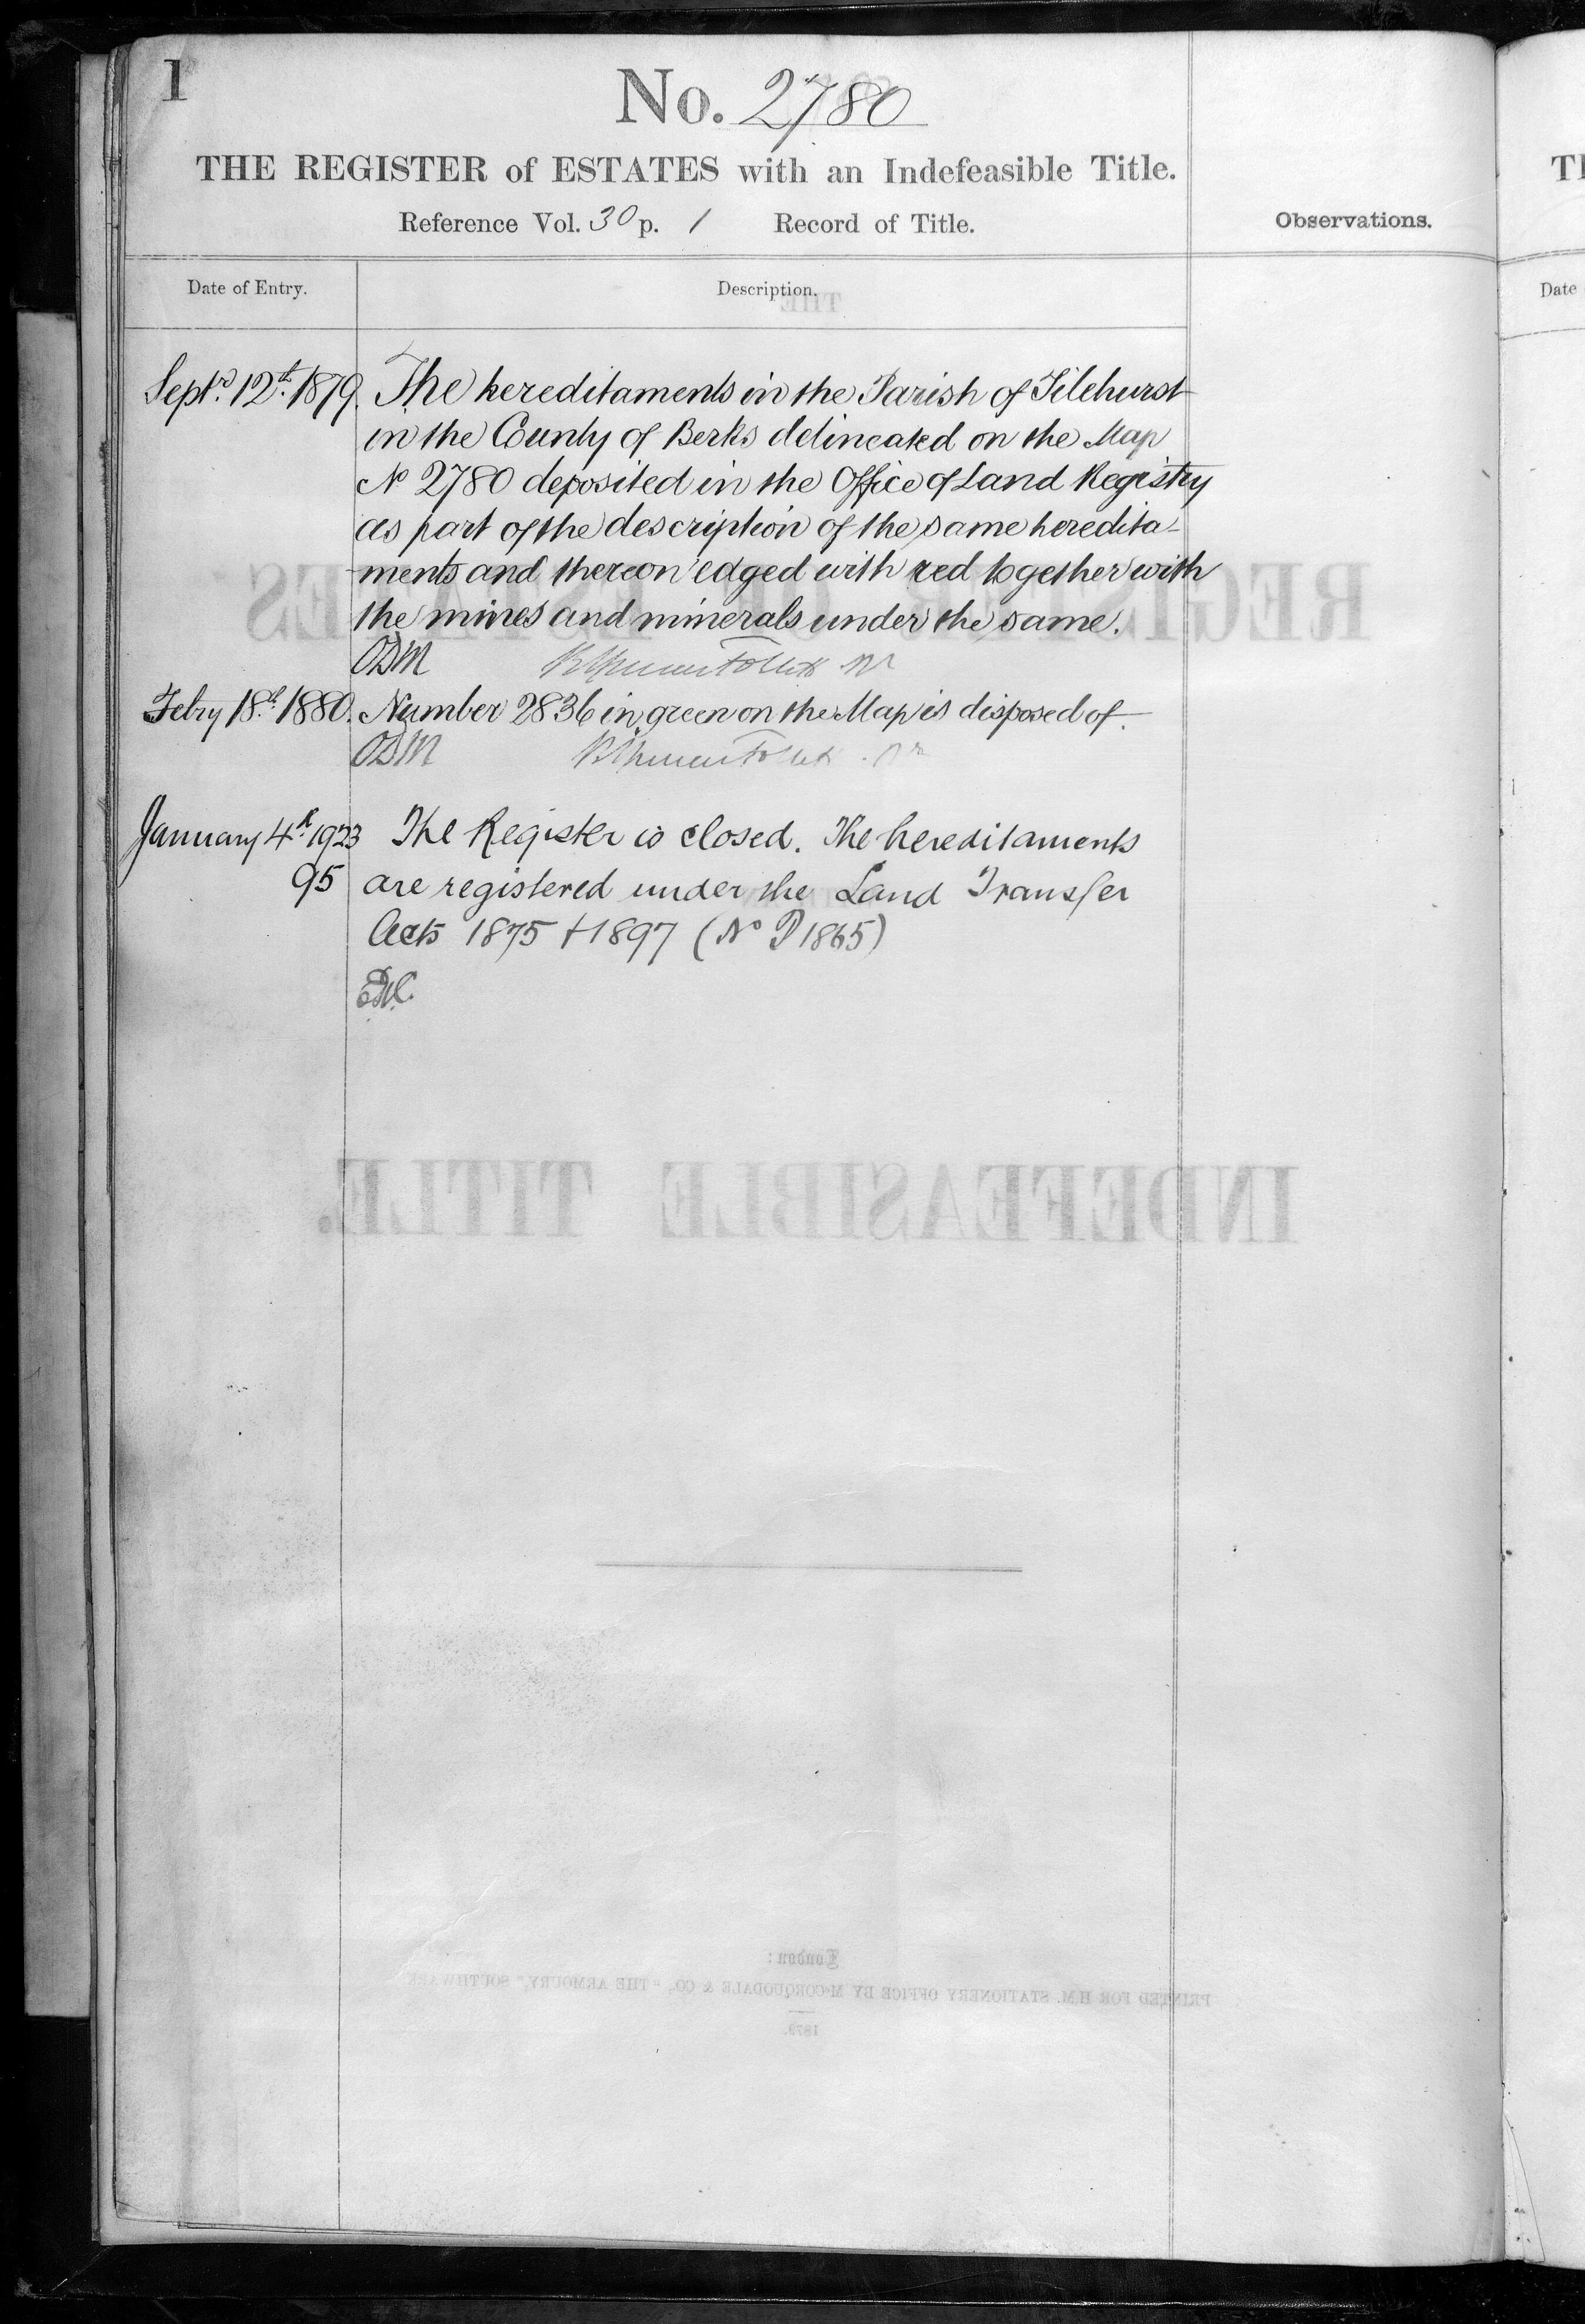 1
No. 2780
THE REGISTER of ESTATES with an Indefeasible Title.
Reference Vol. 30 p. 1 Record of Title.
Observations.
Date of Entry.
Description.
Septr. 12th. 1879. The hereditaments in the Parish of Tilehurst
in the County of Berks delineated on the Map
No 2780 deposited in the Office of Land Registry
as part of the description of the same heredita-
ments and thereon edged with red together with
the mines and minerals under the same.
ODM
Febry 18th. 1880. Number 2836 in green on the Map is disposed of.
ODM
January 4th. 1923 The Register is closed. The hereditaments
95 are registered under the Land Transfer
Acts 1875 + 1897 (No P 1865)
Date
THE
REGISTER OF ESTATES
INDEFEASIBLE TITLE.
London:
PRINTED FOR H.M. STATIONERY OFFICE BY McCORQUODALE & CO., "THE ARMOURY," SOUTHWARK
1879.